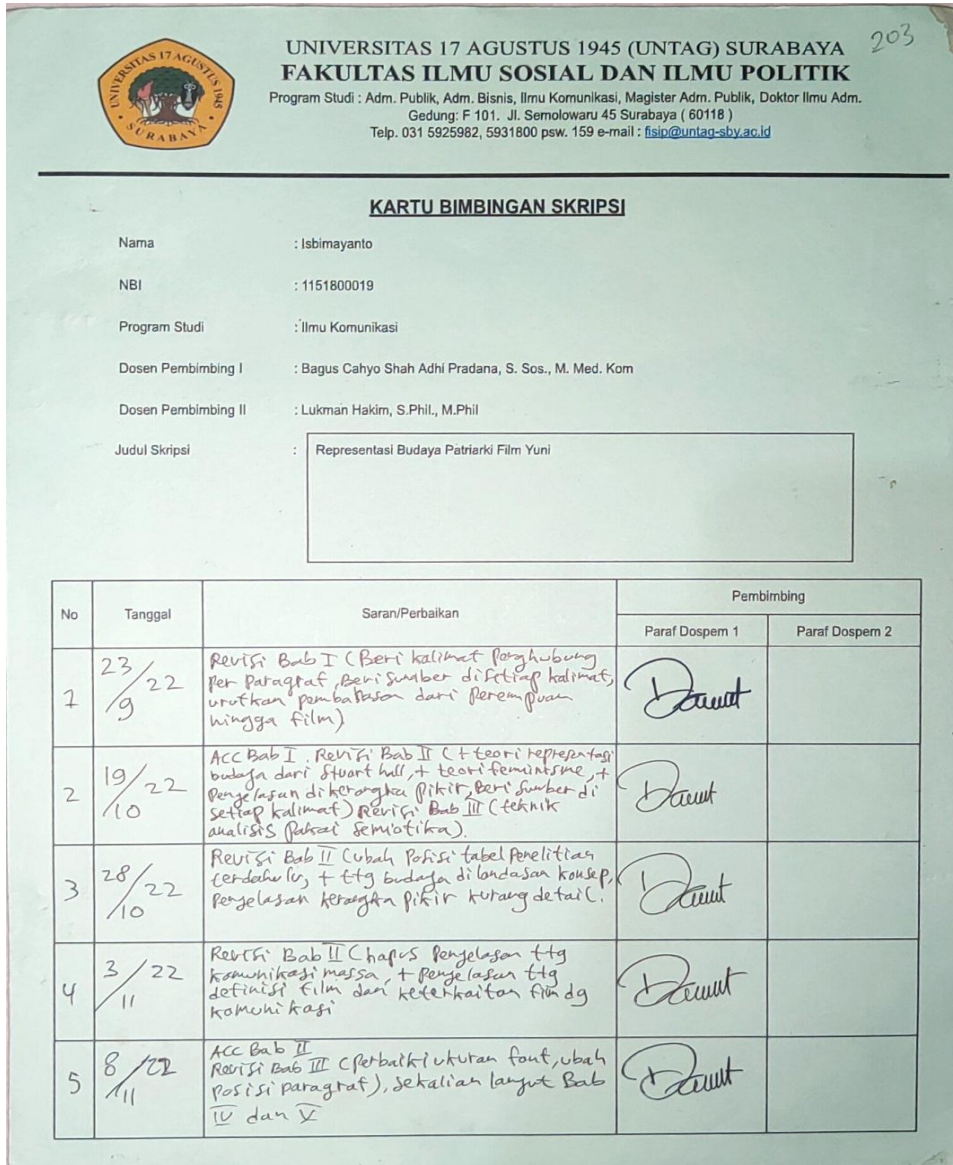 203
UNIVERSITAS 17 AGUSTUS 1945
SURABAYA
UNIVERSITAS 17 AGUSTUS 1945 (UNTAG) SURABAYA
FAKULTAS ILMU SOSIAL DAN ILMU POLITIK
Program Studi : Adm. Publik, Adm. Bisnis, Ilmu Komunikasi, Magister Adm. Publik, Doktor Ilmu Adm.
Gedung: F 101. Jl. Semolowaru 45 Surabaya ( 60118 )
Telp. 031 5925982, 5931800 psw. 159 e-mail : fisip@untag-sby.ac.id
KARTU BIMBINGAN SKRIPSI
Nama : Isbimayanto
NBI : 1151800019
Program Studi : Ilmu Komunikasi
Dosen Pembimbing I : Bagus Cahyo Shah Adhi Pradana, S. Sos., M. Med. Kom
Dosen Pembimbing II : Lukman Hakim, S.Phil., M.Phil
Judul Skripsi : Representasi Budaya Patriarki Film Yuni
No Tanggal Saran/Perbaikan Pembimbing
Paraf Dospem 1 Paraf Dospem 2
1 23/9 22 Revisi Bab I (Beri kalimat Penghubung
per Paragraf, Beri sumber di setiap kalimat,
urutkan pembahasan dari Perempuan
hingga film)
2 19/10 22 ACC Bab I. Revisi Bab II (+ teori representasi
budaya dari Stuart hall, + teori feminisme, +
Penjelasan di kerangka pikir, Beri sumber di
setiap kalimat) Revisi Bab III (teknik
analisis pakai Semiotika).
3 28/10 22 Revisi Bab II (ubah Posisi tabel Penelitian
terdahulu, + ttg budaya di landasan konsep,
Penjelasan kerangka pikir kurang detail.
4 3/11 22 Revisi Bab II (hapus Penjelasan ttg
komunikasi massa, + penjelasan ttg
definisi film dan keterkaitan film dg
komunikasi
5 8/11 22 ACC Bab II
Revisi Bab III (Perbaiki ukuran font, ubah
posisi paragraf), sekalian lanjut Bab
IV dan V